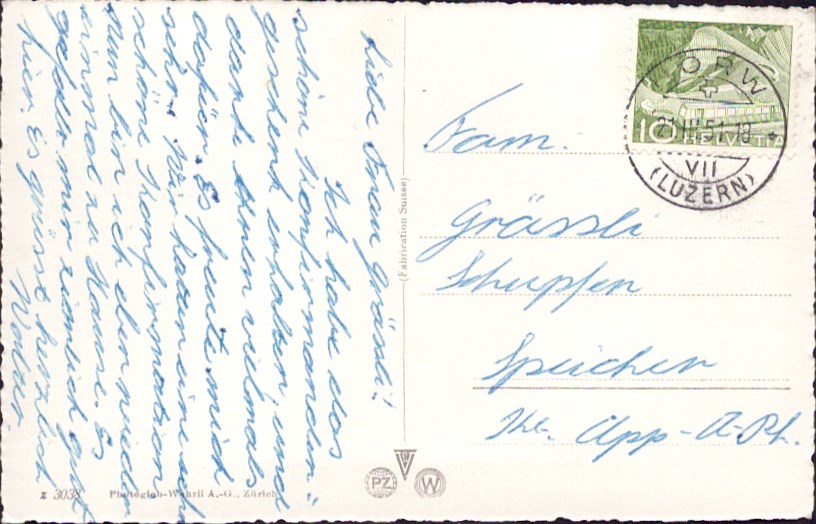 Liebe Frau Grässli!
Ich habe das
schöne Konfirmanden-
geschenk erhalten, und
danke Ihnen vielmals
dafür. Es freute mich
sehr. Wir hatten eine sehr
schöne Konfirmation
Nun bin ich eben wieder
einmal zu Hause. Es
gefällt mir ziemlich gut
hier. Es grüsst herzlich
Walter.
z 3038 Photoglob-Wehrli A.-G., Zürich
(Fabrication Suisse)
PZ W
HORW
21.III.51.-18
VII
(LUZERN)
10 HELVETIA
Fam.
Grässli
Schupfen
Speicher
Kt. App-A-Rh.